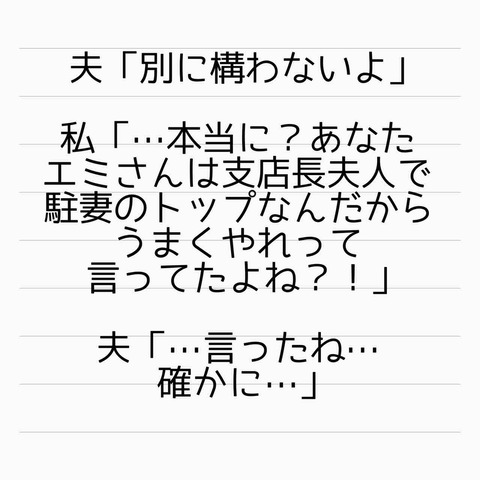 夫「別に構わないよ」
私「…本当に？あなた
エミさんは支店長夫人で
駐妻のトップなんだから
うまくやれって
言ってたよね？！」
夫「…言ったね…
確かに…」